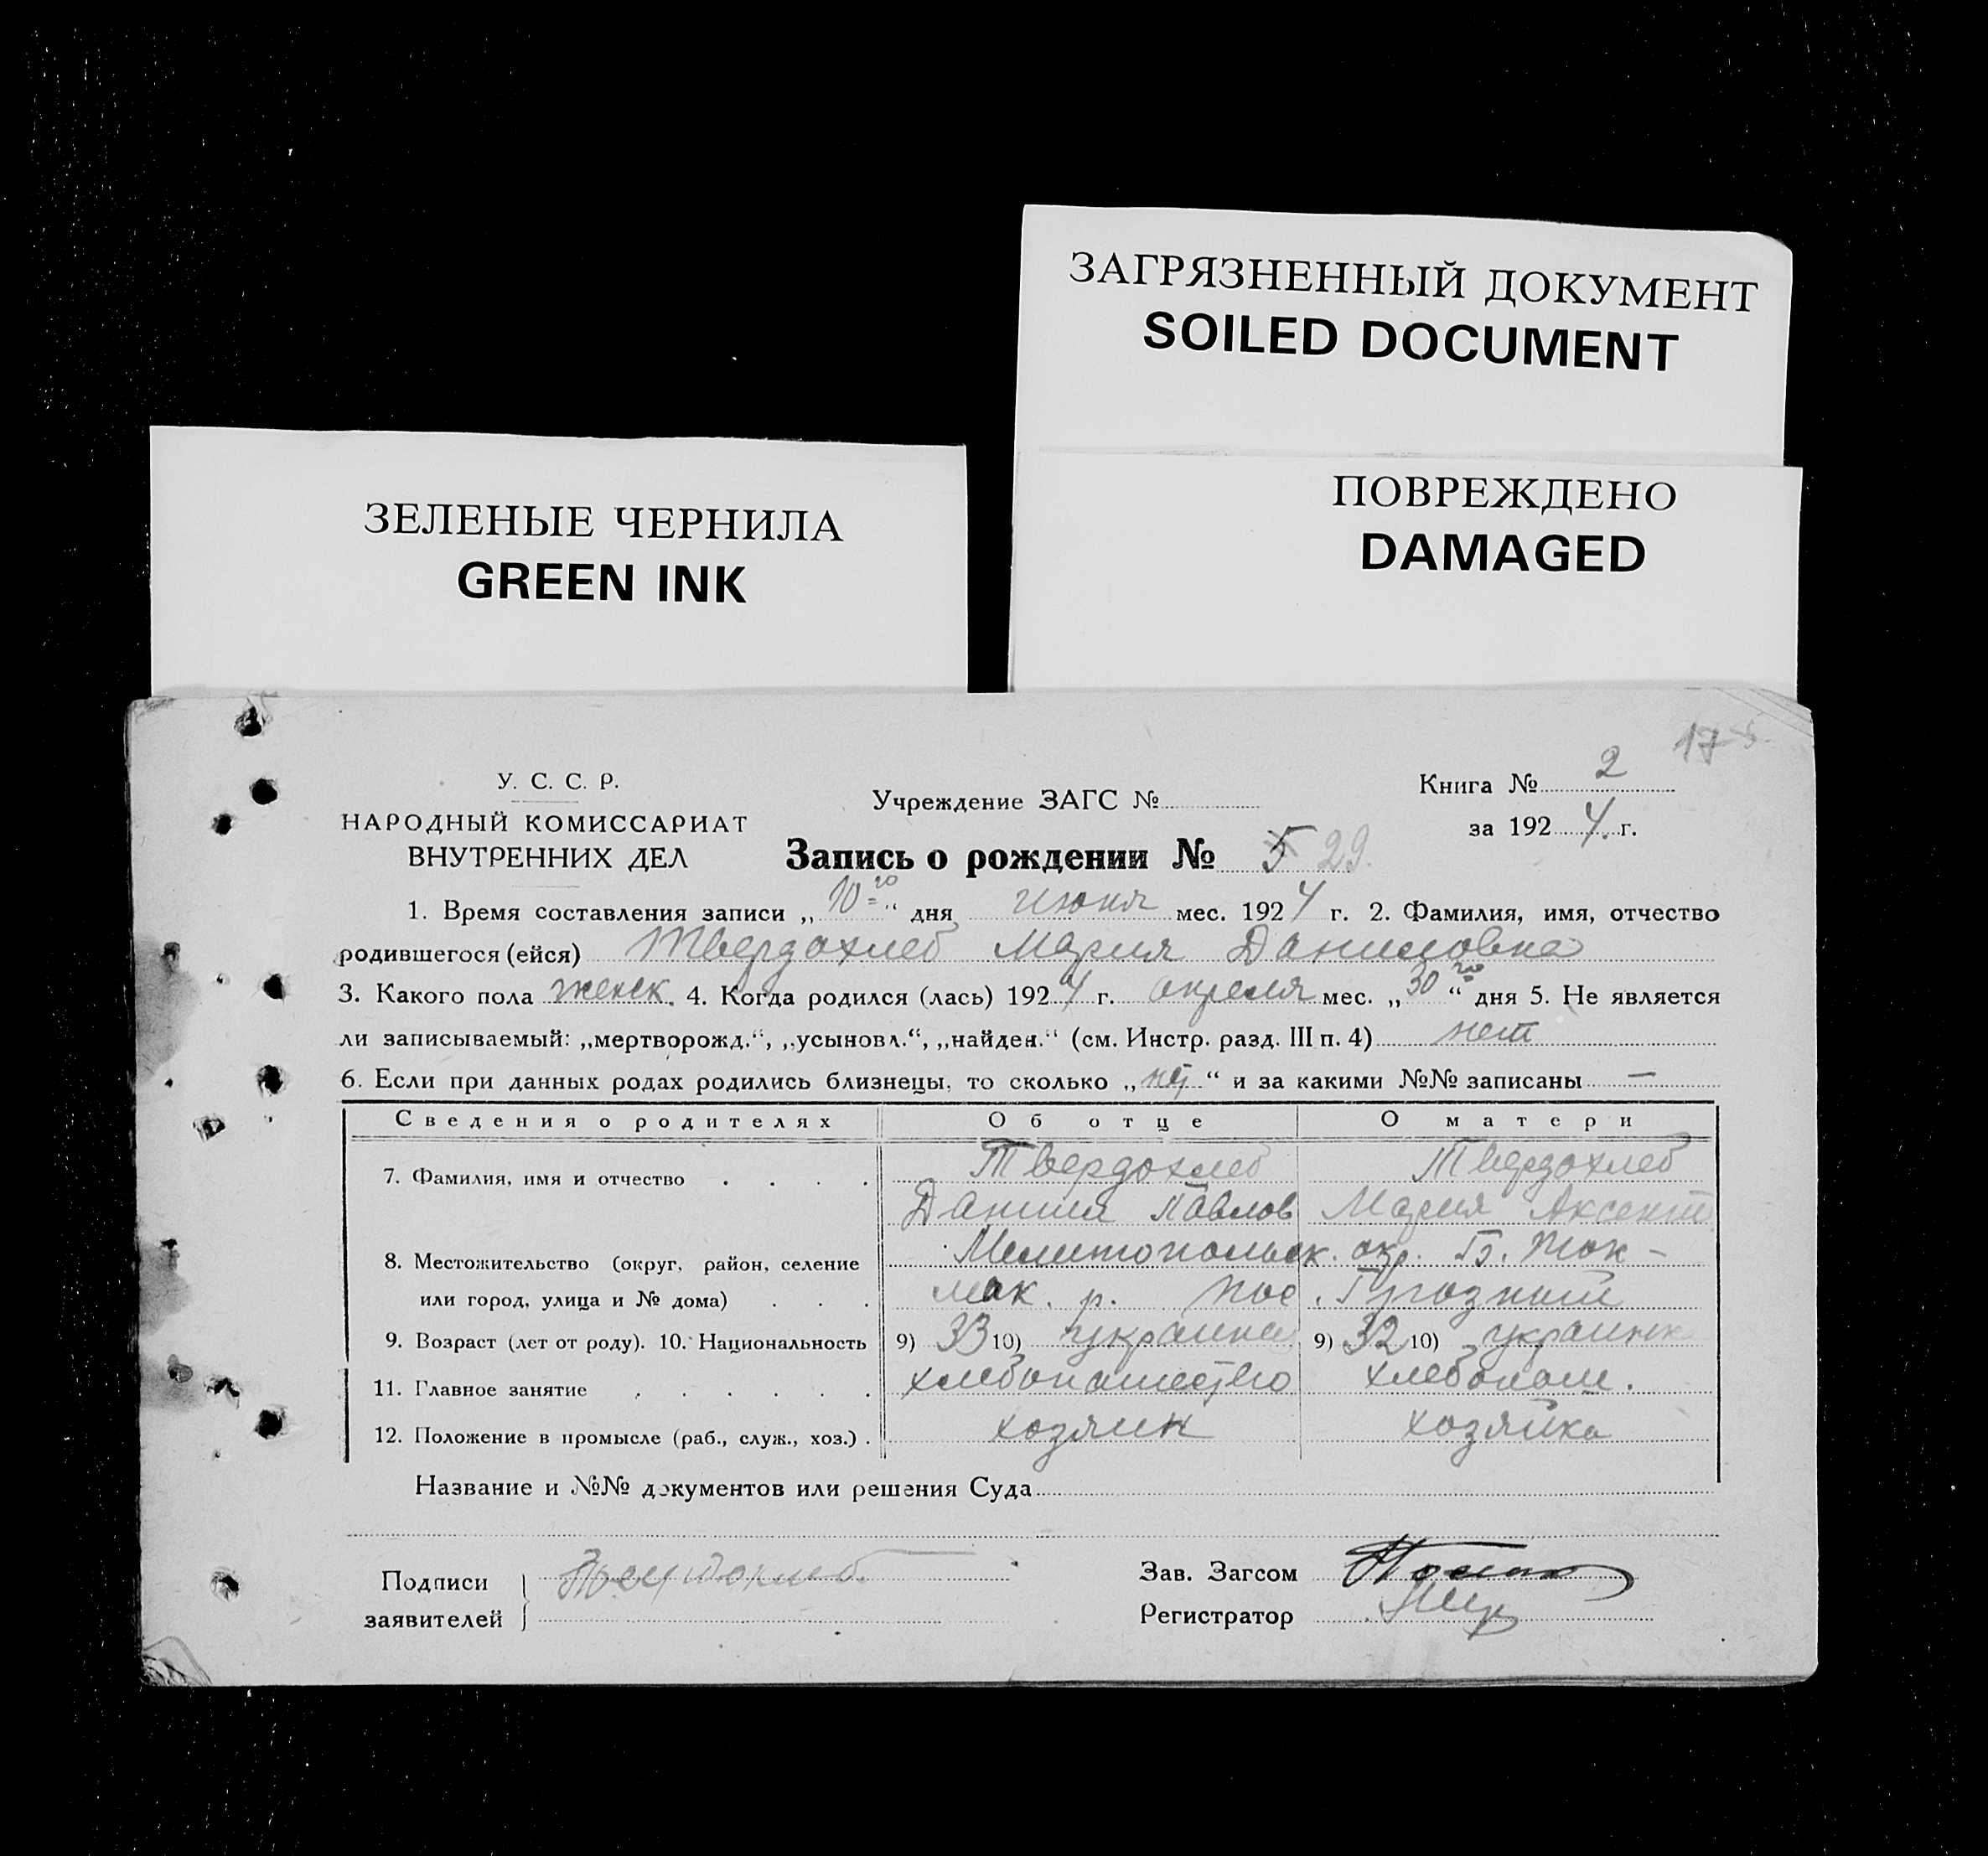 ЗАГРЯЗНЕННЫЙ ДОКУМЕНТ
SOILED DOCUMENT
ЗЕЛЕНЫЕ ЧЕРНИЛА
GREEN INK
ПОВРЕЖДЕНО
DAMAGED
17
У. С. С. Р.
НАРОДНЫЙ КОМИССАРИАТ
ВНУТРЕННИХ ДЕЛ
Учреждение ЗАГС №
Книга № 2
за 1924 г.
Запись о рождении № 5 29.
1. Время составления записи „10го“ дня июня мес. 1924 г. 2. Фамилия, имя, отчество
родившегося (ейся) Твердохлеб Мария Даниловна
3. Какого пола женск. 4. Когда родился (лась) 1924 г. апреля мес. „30го“ дня 5. Не является
ли записываемый: „мертворожд.“, „усыновл.“, „найден.“ (см. Инстр. разд. III п. 4) нет
6. Если при данных родах родились близнецы, то сколько „нет“ и за какими №№ записаны —
Сведения о родителях Об отце О матери
7. Фамилия, имя и отчество . . . . Твердохлеб Твердохлеб
Данил Павлов Мария Аксент
8. Местожительство (округ, район, селение Мелитопольск. окр. Б. Ток-
или город, улица и № дома) . . . мак. р. пос. Грозный
9. Возраст (лет от роду). 10. Национальность 9) 33 10) украинец 9) 32 10) украинк
11. Главное занятие . . . . . . хлебопашество хлебопаш.
12. Положение в промысле (раб., служ., хоз.) . хозяин хозяйка
Название и №№ документов или решения Суда
Подписи
заявителей
Зав. Загсом
Регистратор